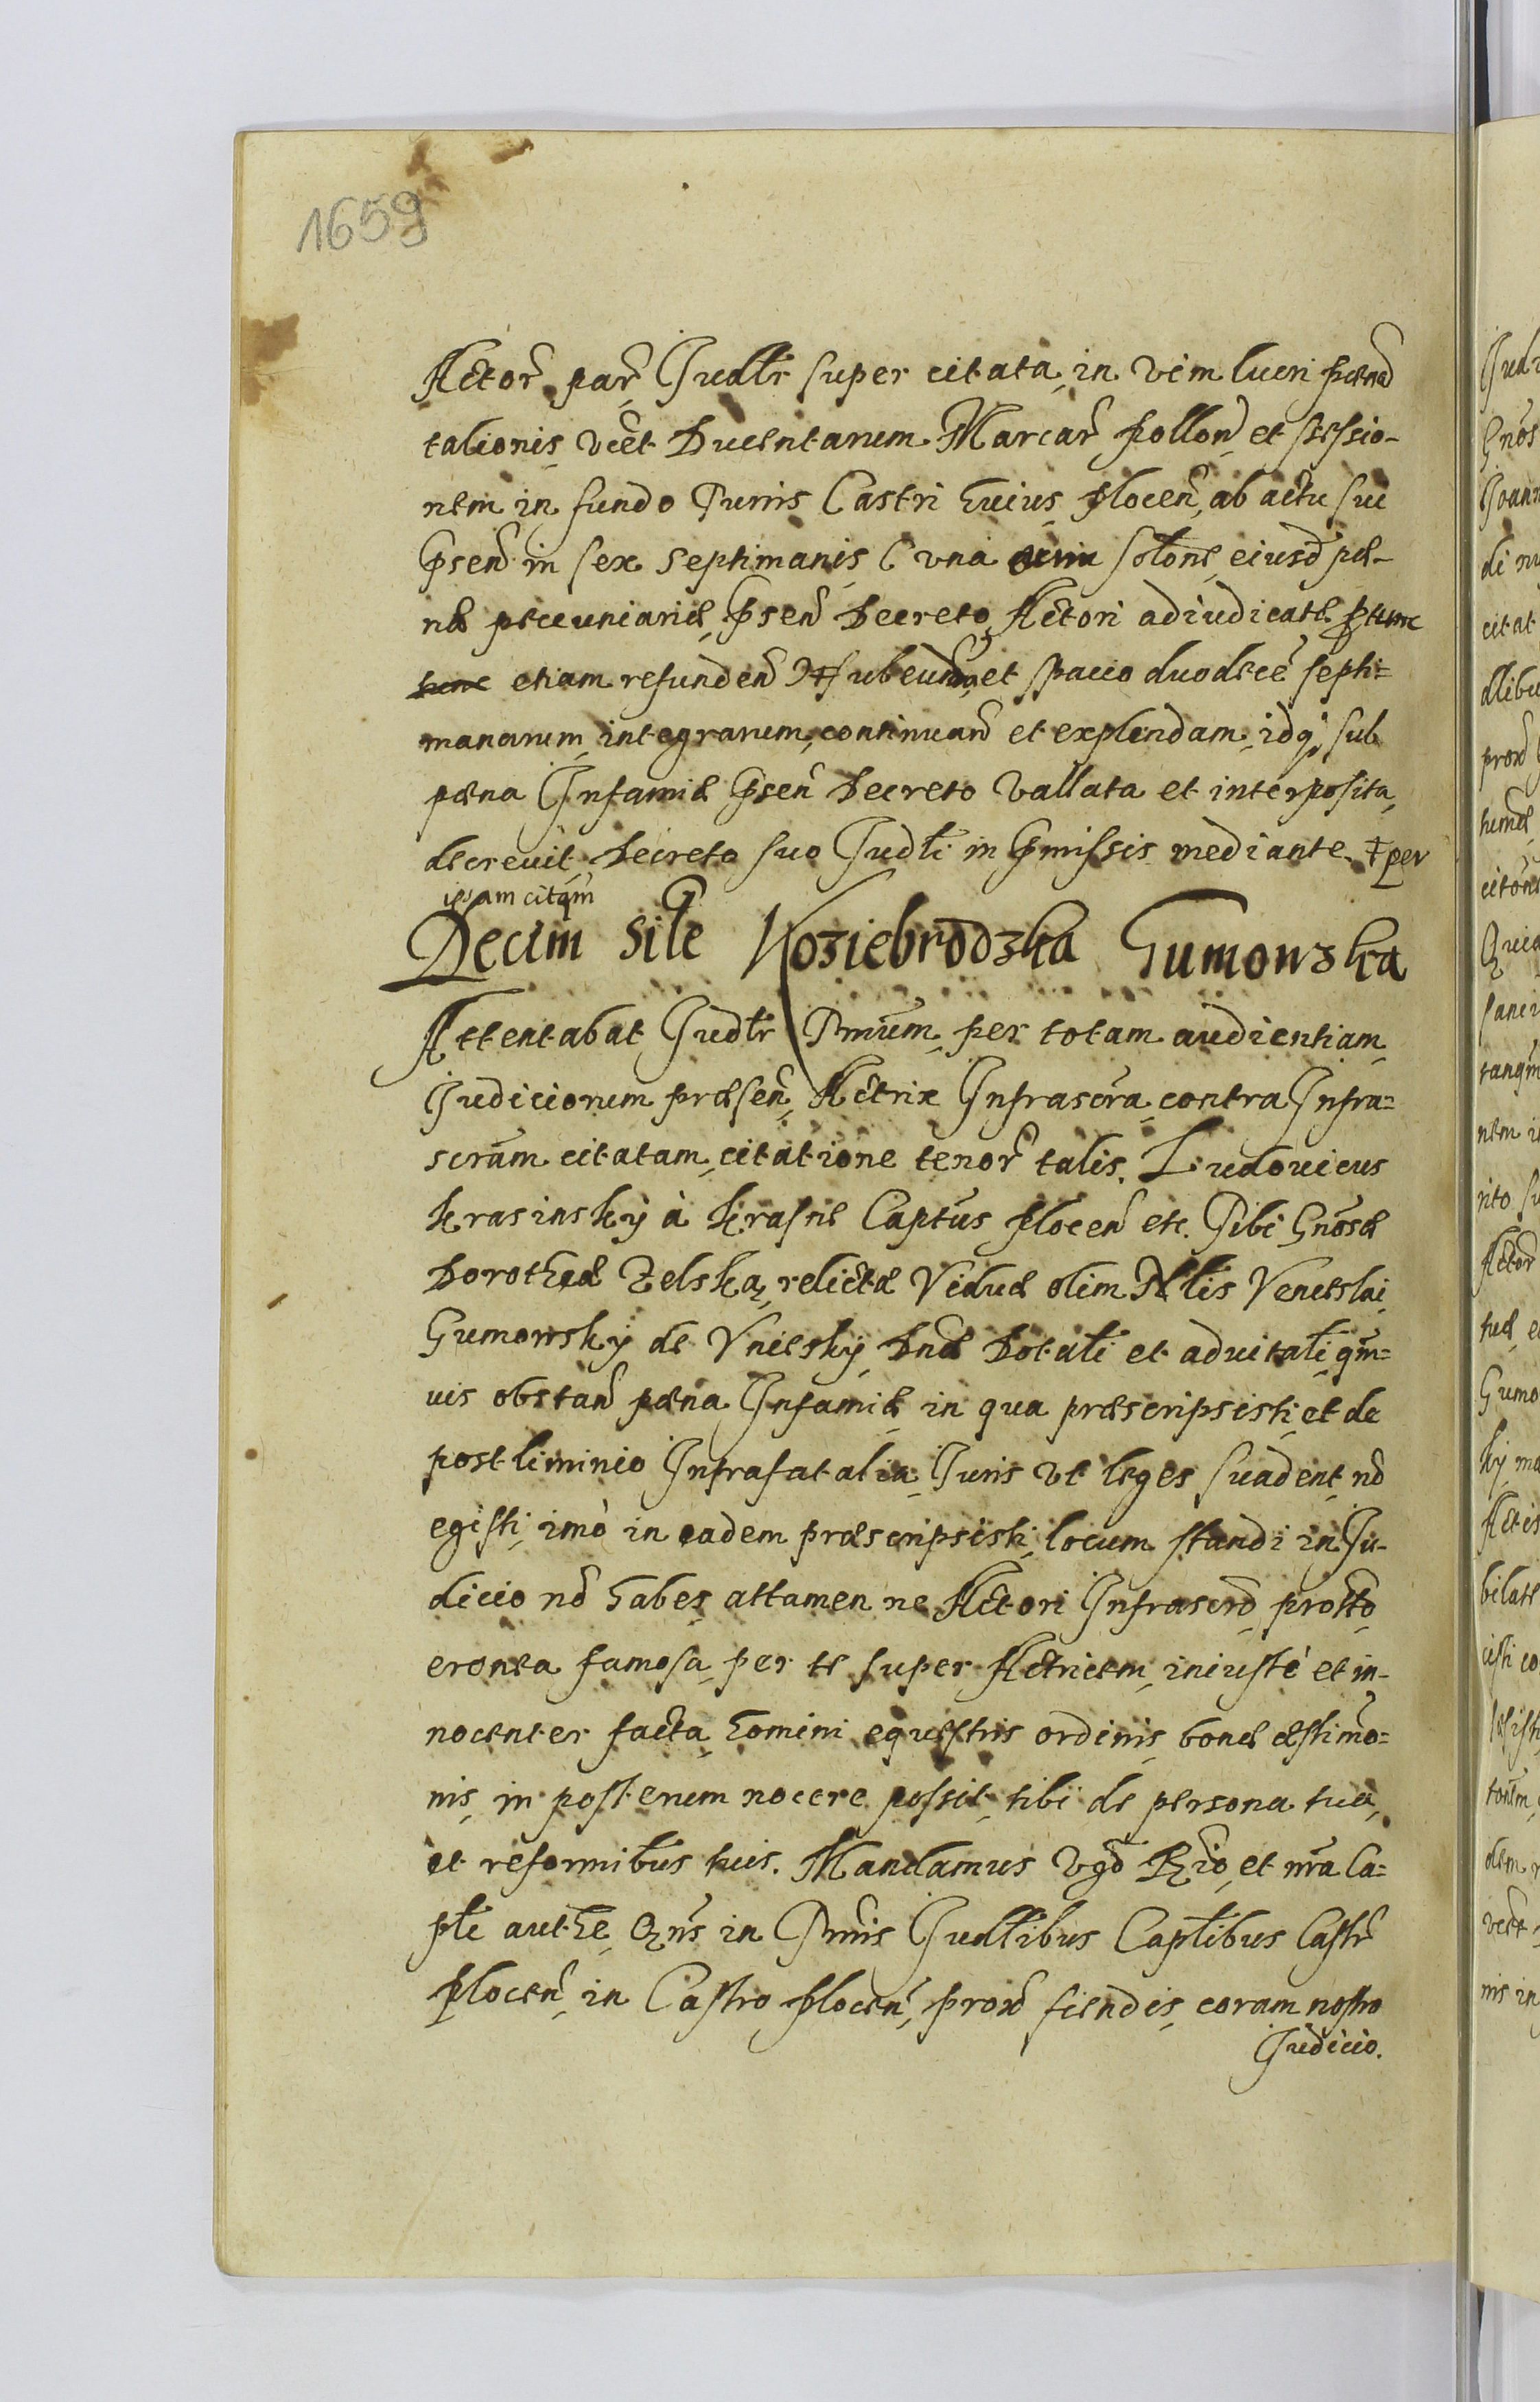 1659
Actor̃ par̃ Judłr super citata in vim lucri pæna
talionis vĉet Ducentarum Marcar̃ pollon̄ et sessio-
nem in fundo Turris Castri huius plocen̄ ab actu sui
p̄sen̄ in sex septimanis Cuna cum solōne eiusd̄ pæ-
næ pecuniariæ p̄sen̄ Decreto Actori adiudicatæ ptunc
tunc etiam refunden̄ ‡ subeunda et spacio duodecē septi=
manarum integrarum continuan̄ et explendam idq; sub
pæna Infamiæ p̄sen̄ Decreto vallata et interposita
decrevit Decreto suo Judłi in p̄missis mediante. ‡ per
ipsam citam
Decim sile Koziebrodzka Gumowska
Attentabat Judłr Pmum per totam audientiam
Judiciorum præsen̄ Actrix Infrascra contra Infra=
scram citatam citatione tenor̃ talis. Ludovicus
Krasinsky à Krasne Captūs plocen̄ etc. Tibi Gnōsæ
Dorotheæ Zelska relictæ Viduæ olim Nłis Venceslai
Gumowsky de Vniesky Dnæ Dotałi et advitałi qm̄=
vis obstan̄ pæna Infamiæ in qua præscripsisti et de
postliminio Infrafatalia Juris vt leges suadent nō
egisti imò in eadem præscripsisti locum standi in Ju-
dicio nō habes attamen ne Actori Infrascrō prostō
eronea famosa per te super Actricem iniustè et in-
nocenter facta homini equestris ordinis bonæ æstimō=
nis in posterum nocere possit tibi de persona tua
et reformibus tuis. Mandamus Vgō Rgiō et nra Ca=
płi authe Qn̄s in Pmis Judłibus Capłibus Castr̃
plocen̄ in Castro plocen̄ prox̄ fiendis coram nostro
Judicio.